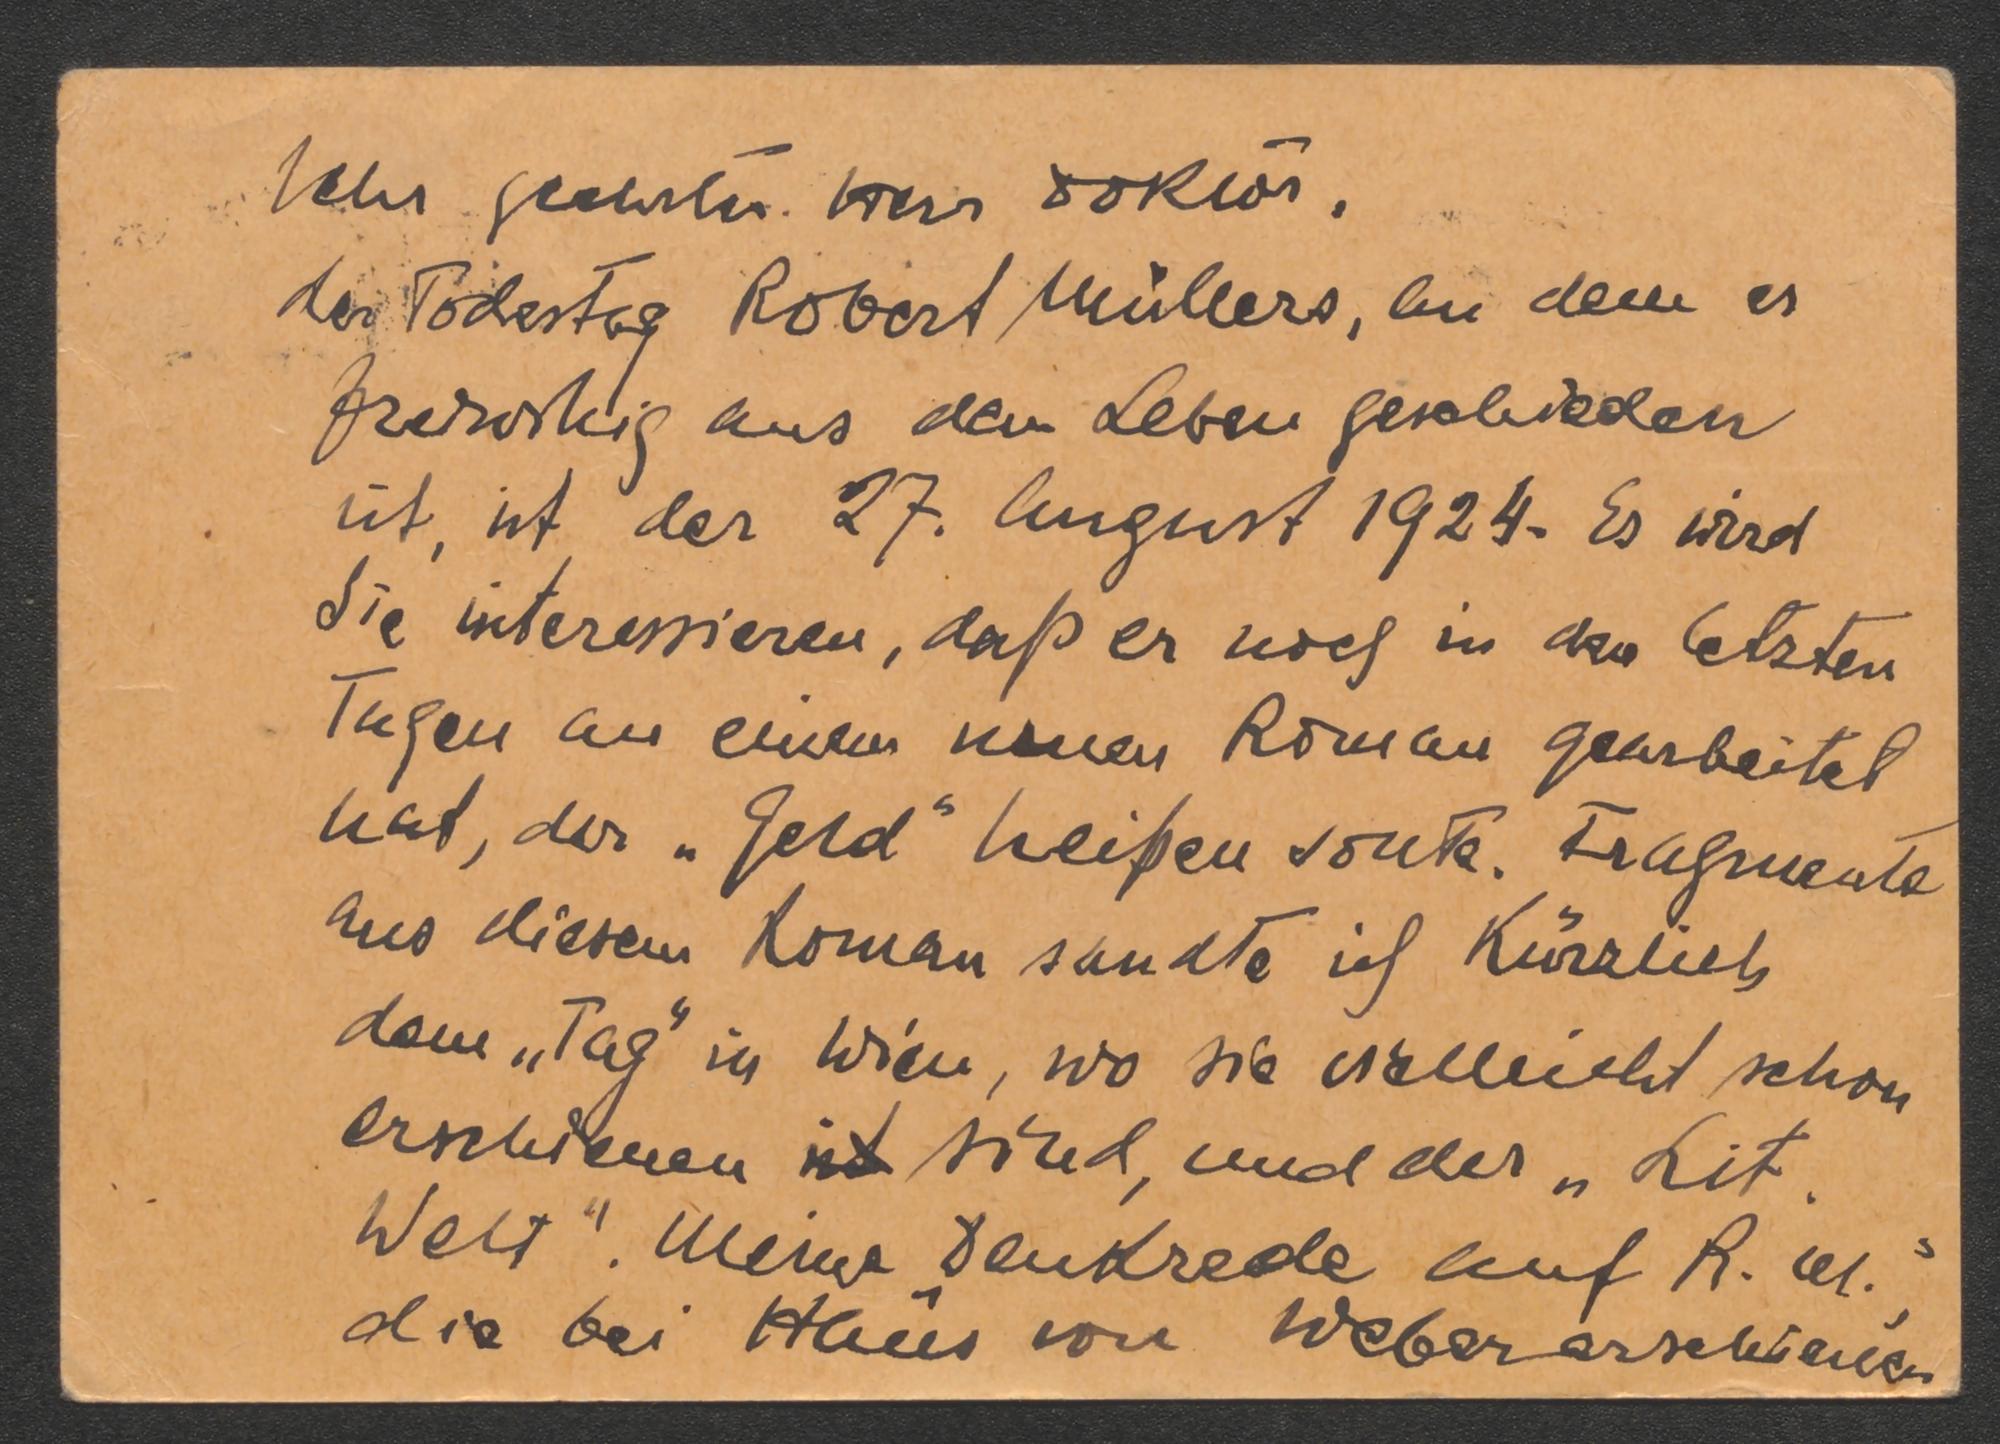 Sehr geehrter Herr Doktor,
der Todestag Robert Müllers, an dem er
freiwillig aus dem Leben geschieden
ist, ist der 27. August 1924. Es wird
Sie interessieren, daß er noch in den letzten
Tagen an einem neuen Roman gearbeitet
hat, der „Geld“ heißen sollte. Fragmente
aus diesem Roman sandte ich kürzlich
dem „Tag“ in Wien, wo sie vielleicht schon
erschienen ist sind, und der „Lit.
Welt“. Meine „Denkrede auf R. M.“,
die bei Hans von Weber erschienen